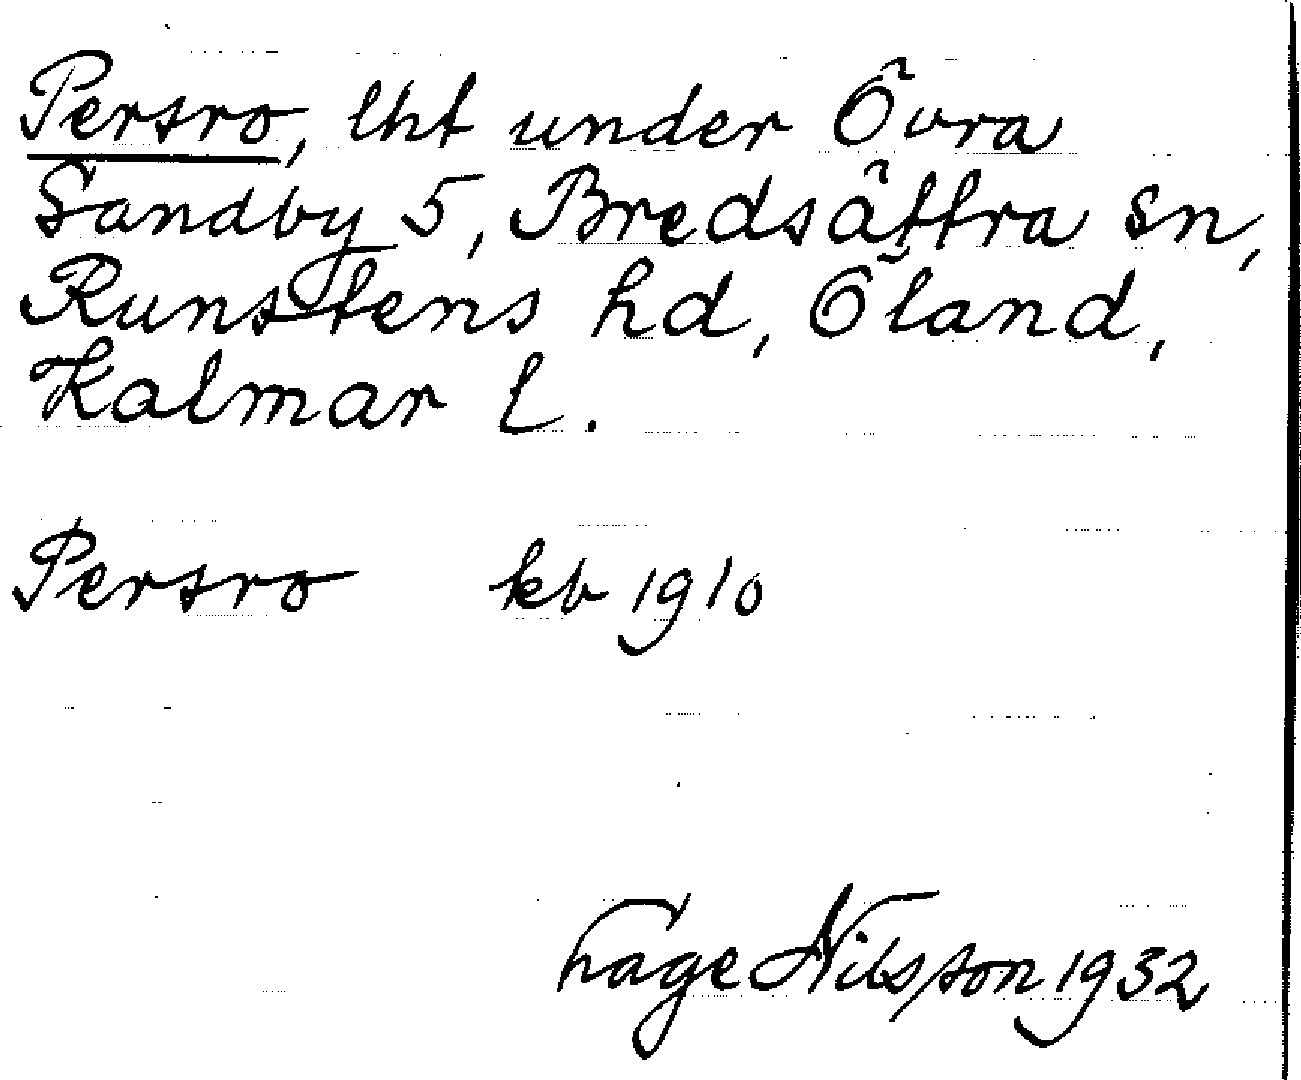 Persro, lht under Övra
Sandby 5, Bredsättra sn,
Runstens hd, Öland,
Kalmar l.
Persro kb 1910
Hage Nilsson 1932